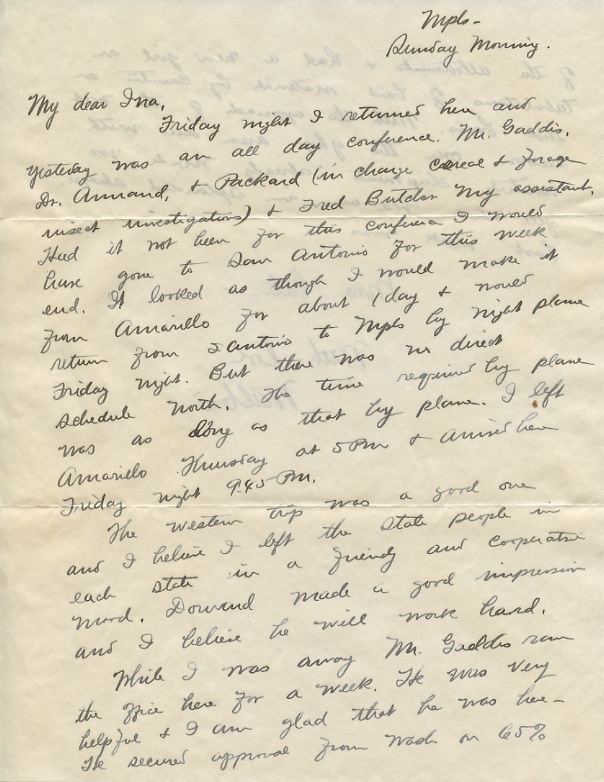 Mpls-
Sunday Morning.
My dear Ina,
Friday night I returned here and
yesterday was an all day conference. Mr. Gaddis,
Dr. Annand, & Packard (in charge cereal & forage
insect investigations) & Fred Butcher my assistant.
Had it not been for this conference I would
have gone to San Antonio for this week
end. It looked as though I would make it
from Amarillo for about 1 day & would
return from S Antonio to Mpls by night plane
Friday night. But there was no direct
schedule North. The time required by plane
was as long as that by plane. I left
Amarillo Thursday at 5 PM & arrived here
Friday night 9:45 PM.
The western trip was a good one
and I believe I left the State people in
each state in a friendly and cooperative
mood. Dorward made a good impression
and I believe he will work hard.
While I was away Mr. Gaddis ran
the office here for a week. He was very
helpful & I am glad that he was here-
He secured approval from Wash on 65%